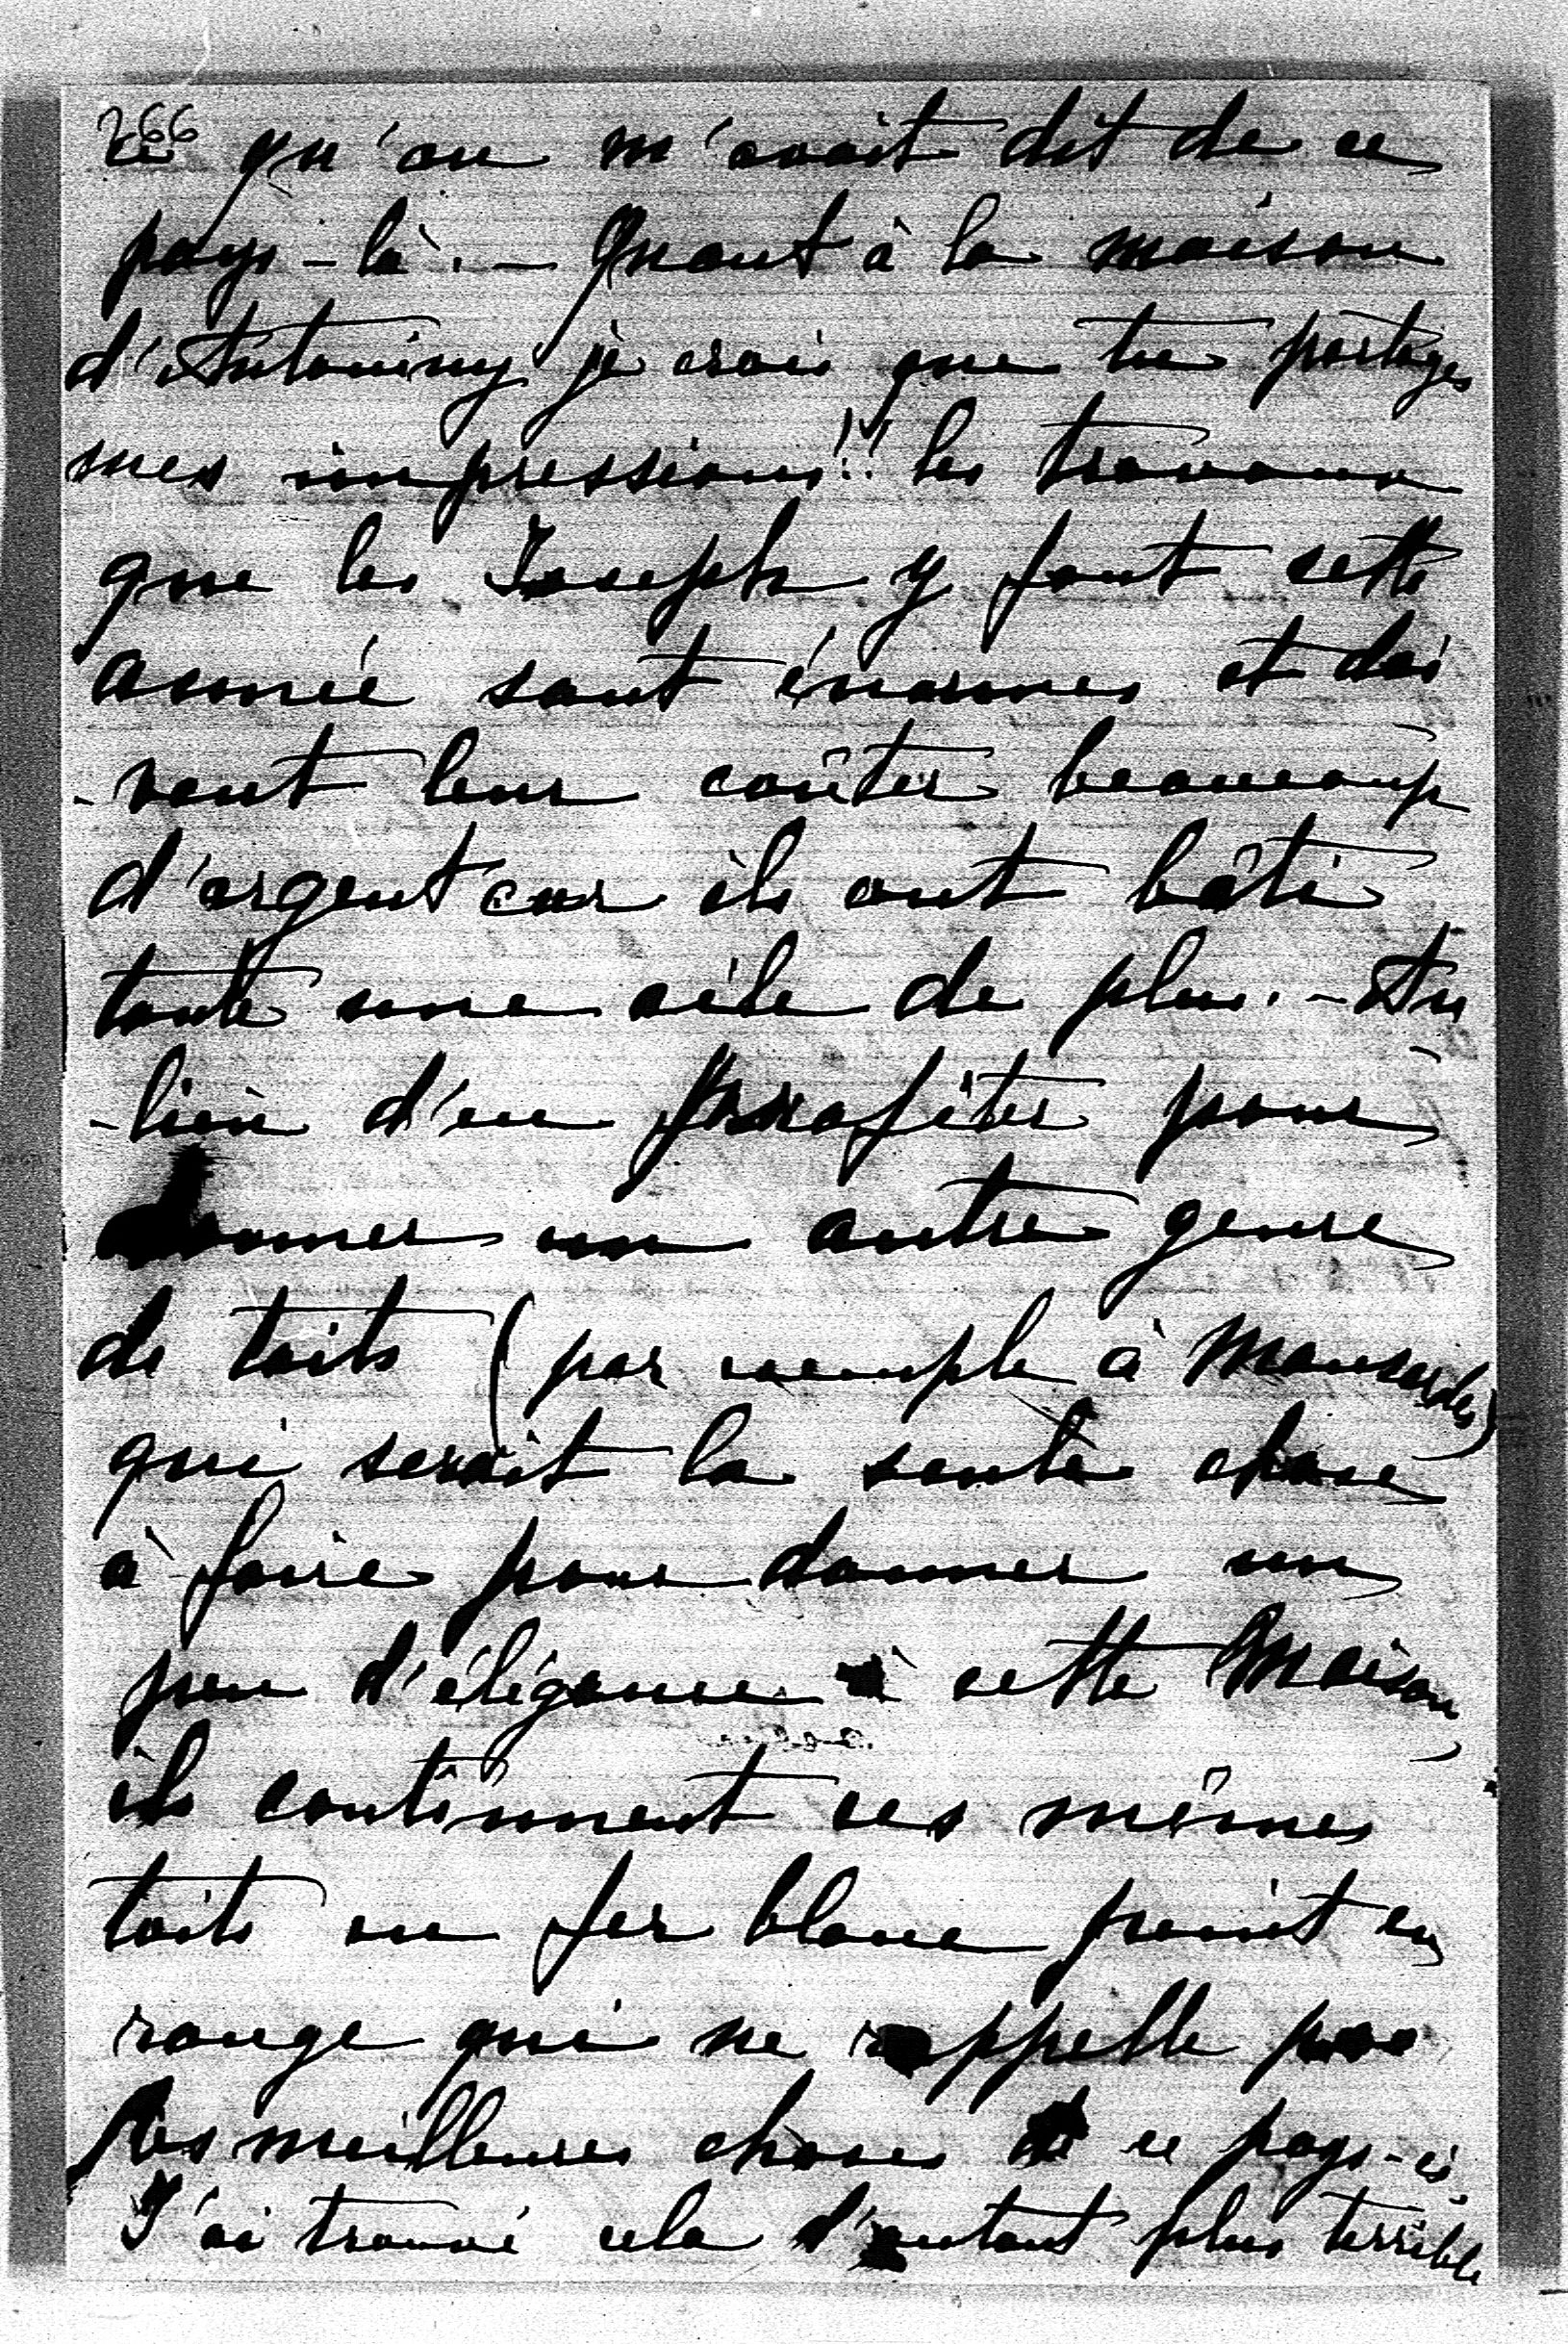 266
ce qu'on m'avait dit de ce
pays-là. – Quant à la maison
d'Antoniny je crois que tu partages
mes impressions!!! les travaux
que les Joseph y font cette
année sont énormes et doi
-vent leur coûter beaucoup
d'argent car ils ont bâti
toute une aile de plus. – Au
-lieu d'en profiter pour
donner un autre genre
de toits (par exemple à Mansardes)
qui serait la seule chose
à faire pour donner un
peu d'élégance à cette Maison,
ils continuent ces mêmes
toits en fer blanc peint en
rouge qui ne rappelle pas
les meilleures choses de ce pays-ci.
J'ai trouvé cela d'autant plus terrible